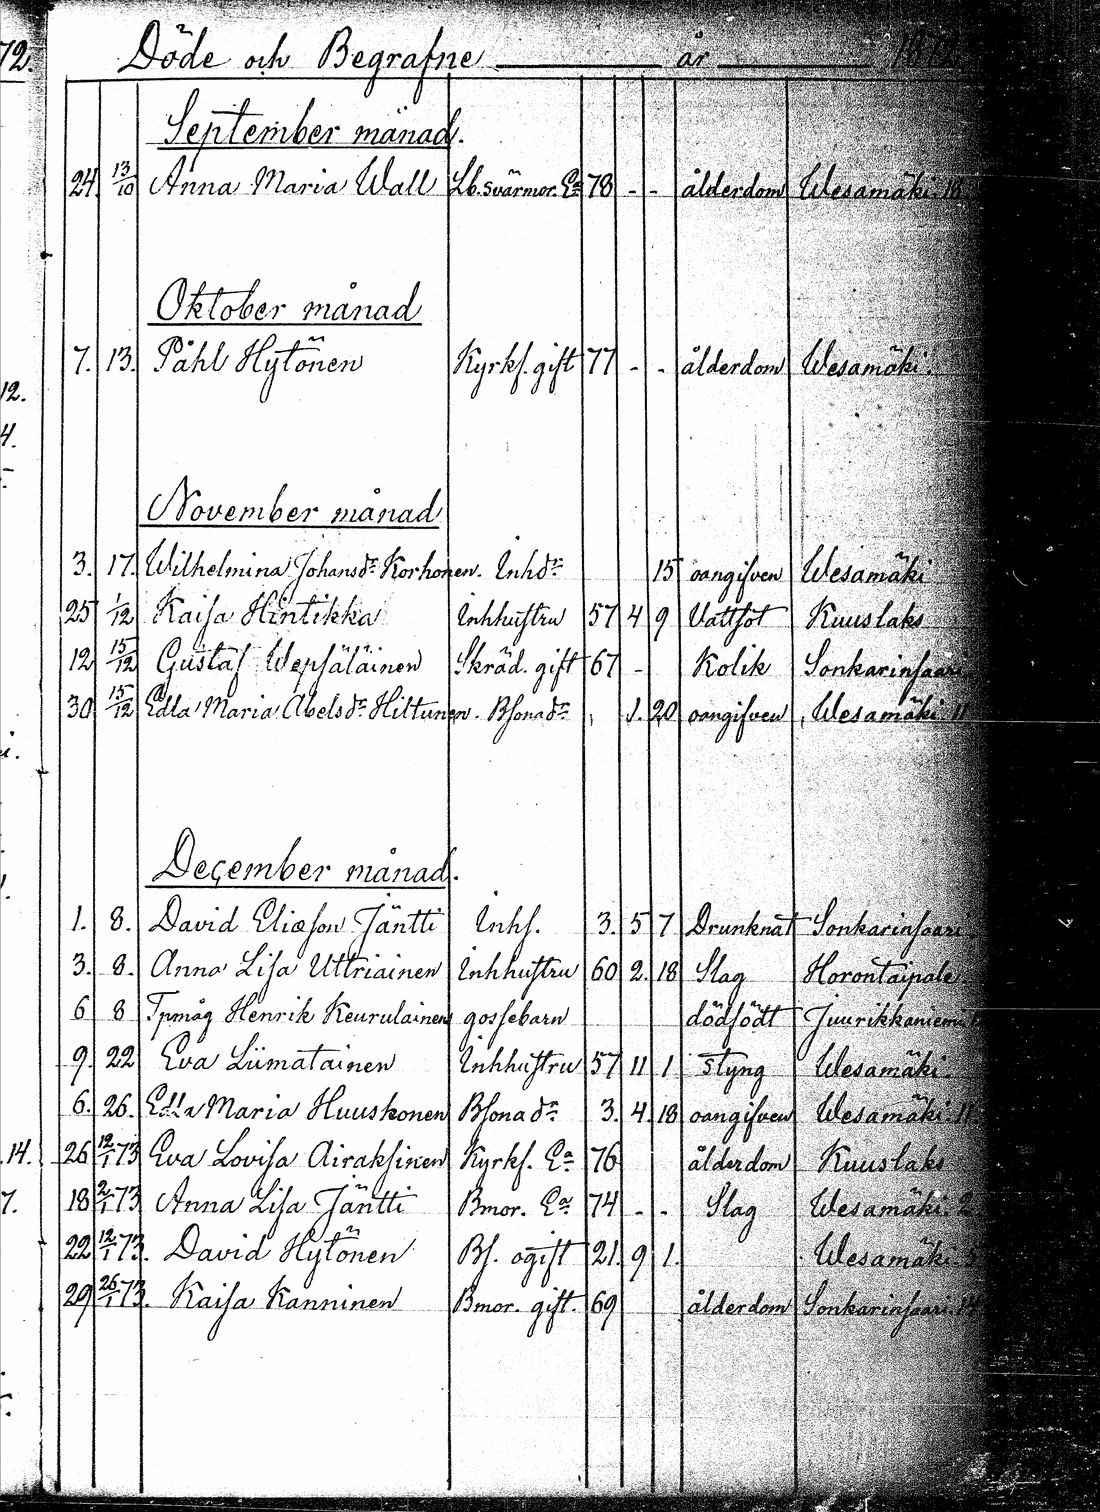 72.
Döde och Begrafne år 1872
September månad.
24. 13/10 Anna Maria Wall Lb. svärmor. Ea 78 - - ålderdom Wesamäki. 18
Oktober månad
7. 13. Påhl Hytönen Kyrkf. gift 77 - - ålderdom Wesamäki.
12.
4.
November månad
3. 17. Wilhelmina Johansdr. Korhonen. Inhdr. 15 oangifven Wesamäki
25 1/12 Kaisa Hintikka Inhhustru 57 4 9 Vattsot Kuuslaks
12 15/12 Gustaf Wepsäläinen Skräd. gift 67 - Kolik Sonkarinsaari
30 15/12 Edla Maria Abelsdr. Hiltunen. Bsonadr. 1. 20 oangifven Wesamäki. 11
December månad.
1. 8. David Eliasson Jäntti Inhs. 3. 5 7 Drunknat Sonkarinsaari.
3. 8. Anna Lisa Uttriainen Inhhustru 60 2. 18 Slag Horontaipale.
6 8 Tpmåg Henrik Keurulainens gossebarn dödfödt Juurikkaniemi
9. 22 Eva Liimatainen Inhhustru 57 11 1 styng Wesamäki.
6. 26. Edla Maria Huuskonen Bsonadr. 3. 4. 18 oangifven Wesamäki. 11.
14. 26 12/1 73 Eva Lovisa Airaksinen Kyrkf. Ea 76 ålderdom Kuuslaks
7. 18 2/1 73 Anna Lisa Jäntti Bmor. Ea 74 - - Slag Wesamäki. 2
22 12/1 73. David Hytönen Bs. ogift 21. 9 1. Wesamäki.
29 26/1 73. Kaisa Kanninen Bmor. gift. 69 ålderdom Sonkarinsaari. 14